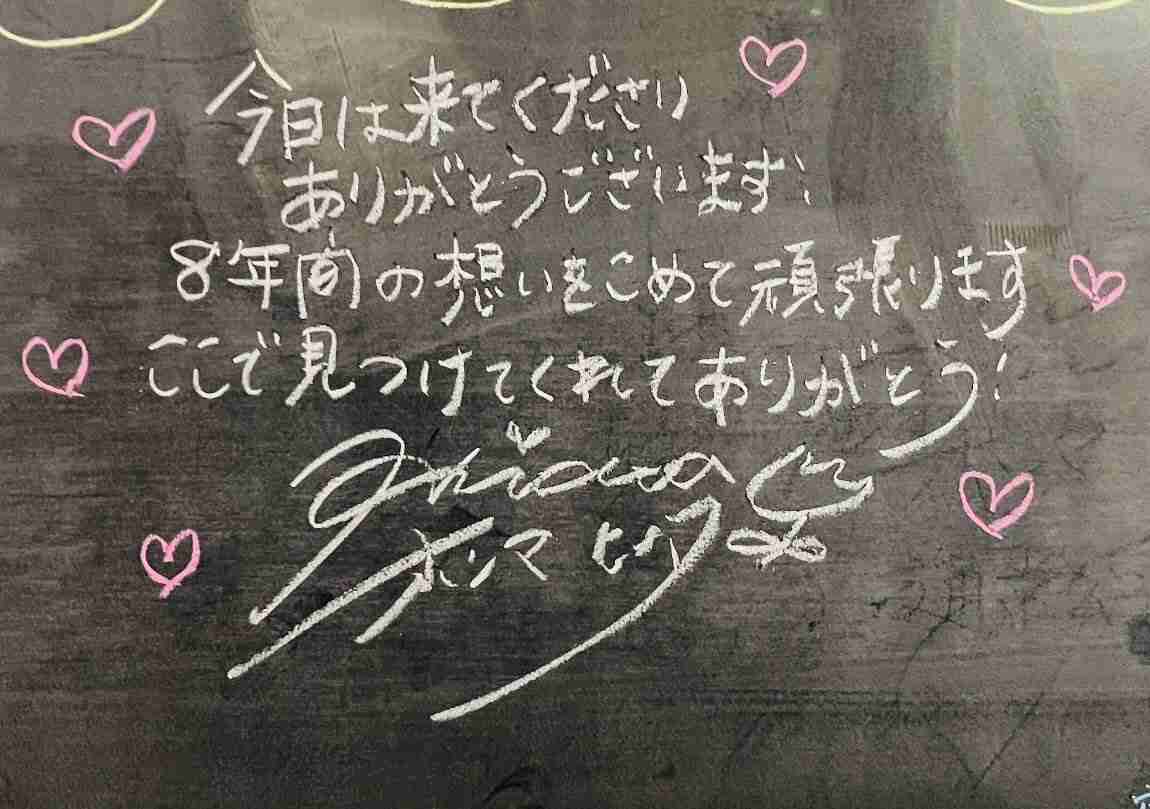 今日は来てくださり
ありがとうございます!
8年間の想いをこめて頑張ります
ここで見つけてくれてありがとう!
ホンマ